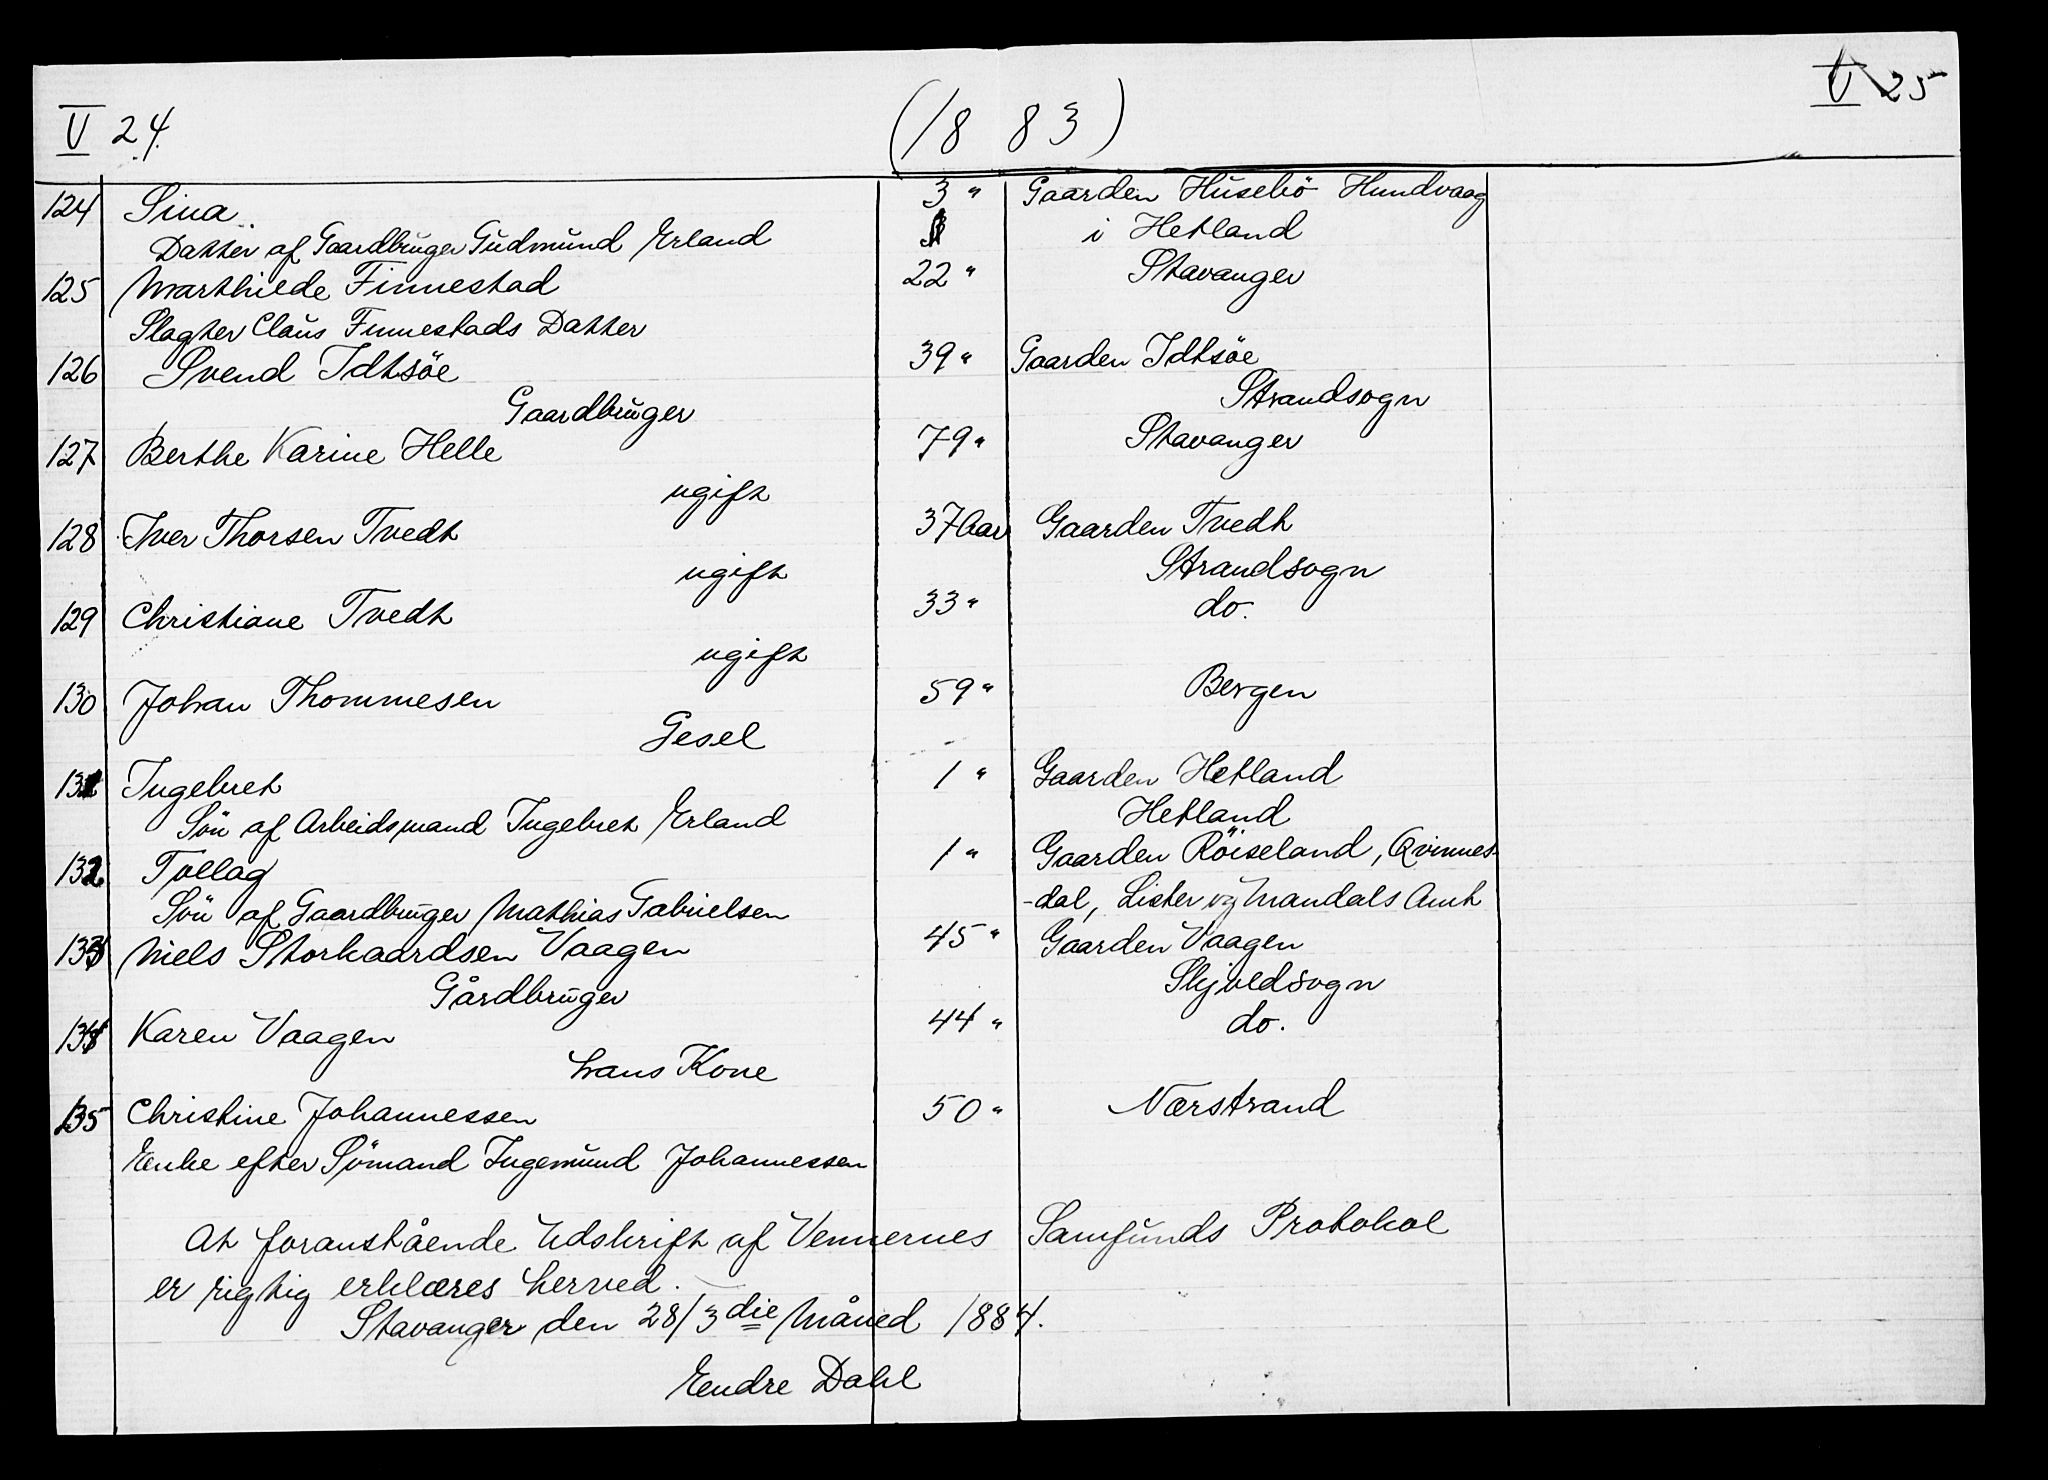 V 24.
(1883)
V 25
124 Sina 3 " Gaarden Husebö Hundvaag
Datter af Gaardbruger Gudmund Erland i Hetland
125 Marthilde Finnestad 22 " Stavanger
Slagter Claus Finnestads Datter
126 Svend Idtsöe 39 " Gaarden Idtsöe
Gaardbruger Strandsogn
127 Berthe Karine Helle 79 " Stavanger
ugift
128 Iver Thorsen Tvedt 37 Aar Gaarden Tvedt
ugift Strandsogn
129 Christiane Tvedt 33 " do.
ugift
130 Johan Thommesen 59 " Bergen
Gesel
131 Ingebret 1 " Gaarden Hetland
Sön af Arbeidsmand Ingebret Erland Hetland
132 Tollag 1 " Gaarden Röiseland, Qvinnes-
Sön af Gaardbruger Mathias Gabrielsen -dal, Lister og Mandals Amt
133 Niels Storkaardsen Vaagen 45 " Gaarden Vaagen
Gårdbruger Skjoldsogn
134 Karen Vaagen 44 " do.
hans Kone
135 Christine Johannessen 50 " Nærstrand
Enke efter Sömand Ingemund Johannessen
At foranstående Udskrift af Vennernes Samfunds Protokol
er rigtig erklæres herved.
Stavanger den 28/3die Måned 1884.
Endre Dahl